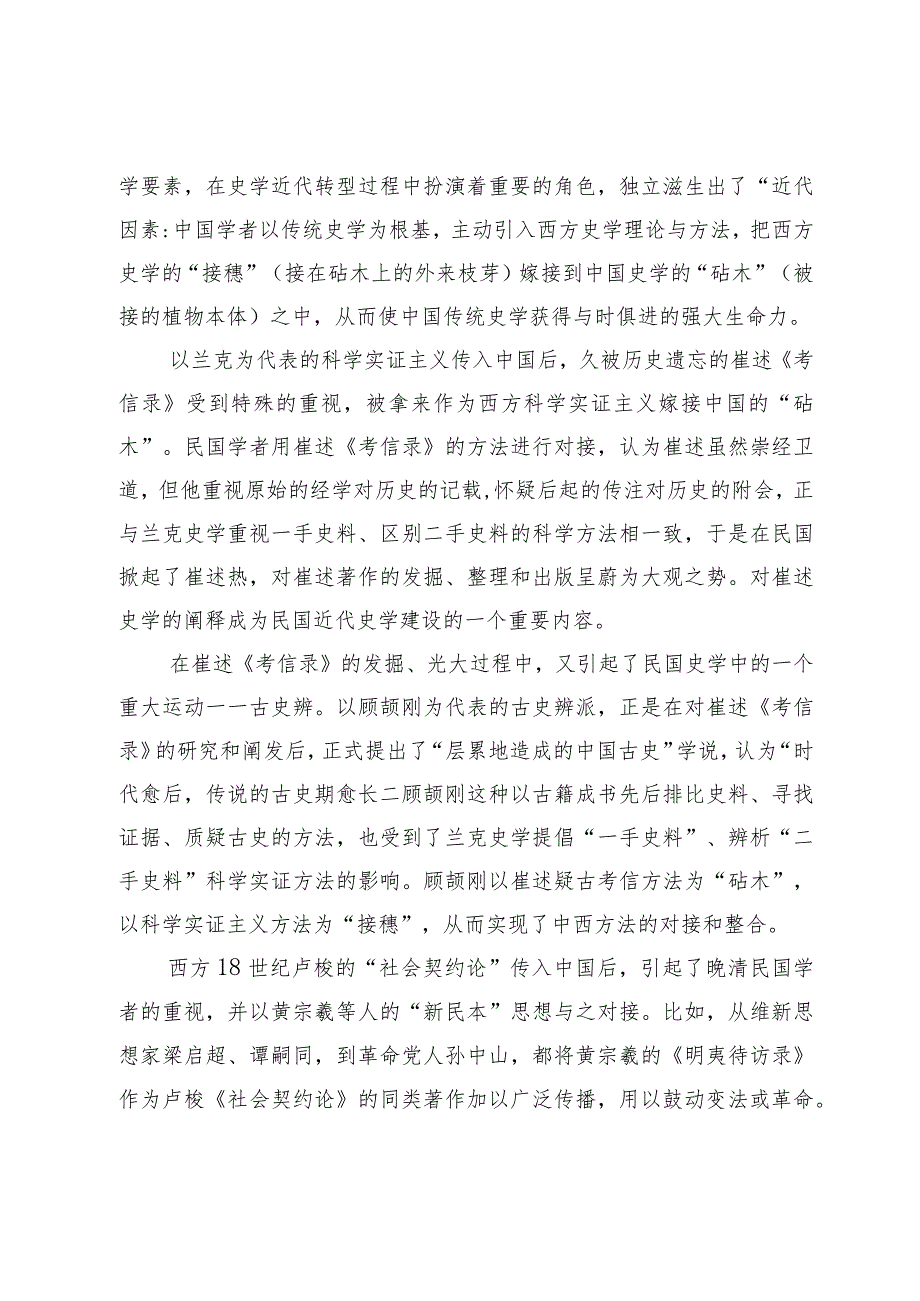 学要素，在史学近代转型过程中扮演着重要的角色，独立滋生出了“近代
因素:中国学者以传统史学为根基，主动引入西方史学理论与方法，把西方
史学的“接穗”（接在砧木上的外来枝芽）嫁接到中国史学的“砧木”（被
接的植物本体）之中，从而使中国传统史学获得与时俱进的强大生命力。
以兰克为代表的科学实证主义传入中国后，久被历史遗忘的崔述《考
信录》受到特殊的重视，被拿来作为西方科学实证主义嫁接中国的“砧
木”。民国学者用崔述《考信录》的方法进行对接，认为崔述虽然崇经卫
道，但他重视原始的经学对历史的记载,怀疑后起的传注对历史的附会，正
与兰克史学重视一手史料、区别二手史料的科学方法相一致，于是在民国
掀起了崔述热，对崔述著作的发掘、整理和出版呈蔚为大观之势。对崔述
史学的阐释成为民国近代史学建设的一个重要内容。
在崔述《考信录》的发掘、光大过程中，又引起了民国史学中的一个
重大运动一一古史辨。以顾颉刚为代表的古史辨派，正是在对崔述《考信
录》的研究和阐发后，正式提出了“层累地造成的中国古史”学说，认为“时
代愈后，传说的古史期愈长二顾颉刚这种以古籍成书先后排比史料、寻找
证据、质疑古史的方法，也受到了兰克史学提倡“一手史料”、辨析“二
手史料”科学实证方法的影响。顾颉刚以崔述疑古考信方法为“砧木”，
以科学实证主义方法为“接穗”，从而实现了中西方法的对接和整合。
西方18世纪卢梭的“社会契约论”传入中国后，引起了晚清民国学
者的重视，并以黄宗羲等人的“新民本”思想与之对接。比如，从维新思
想家梁启超、谭嗣同，到革命党人孙中山，都将黄宗羲的《明夷待访录》
作为卢梭《社会契约论》的同类著作加以广泛传播，用以鼓动变法或革命。